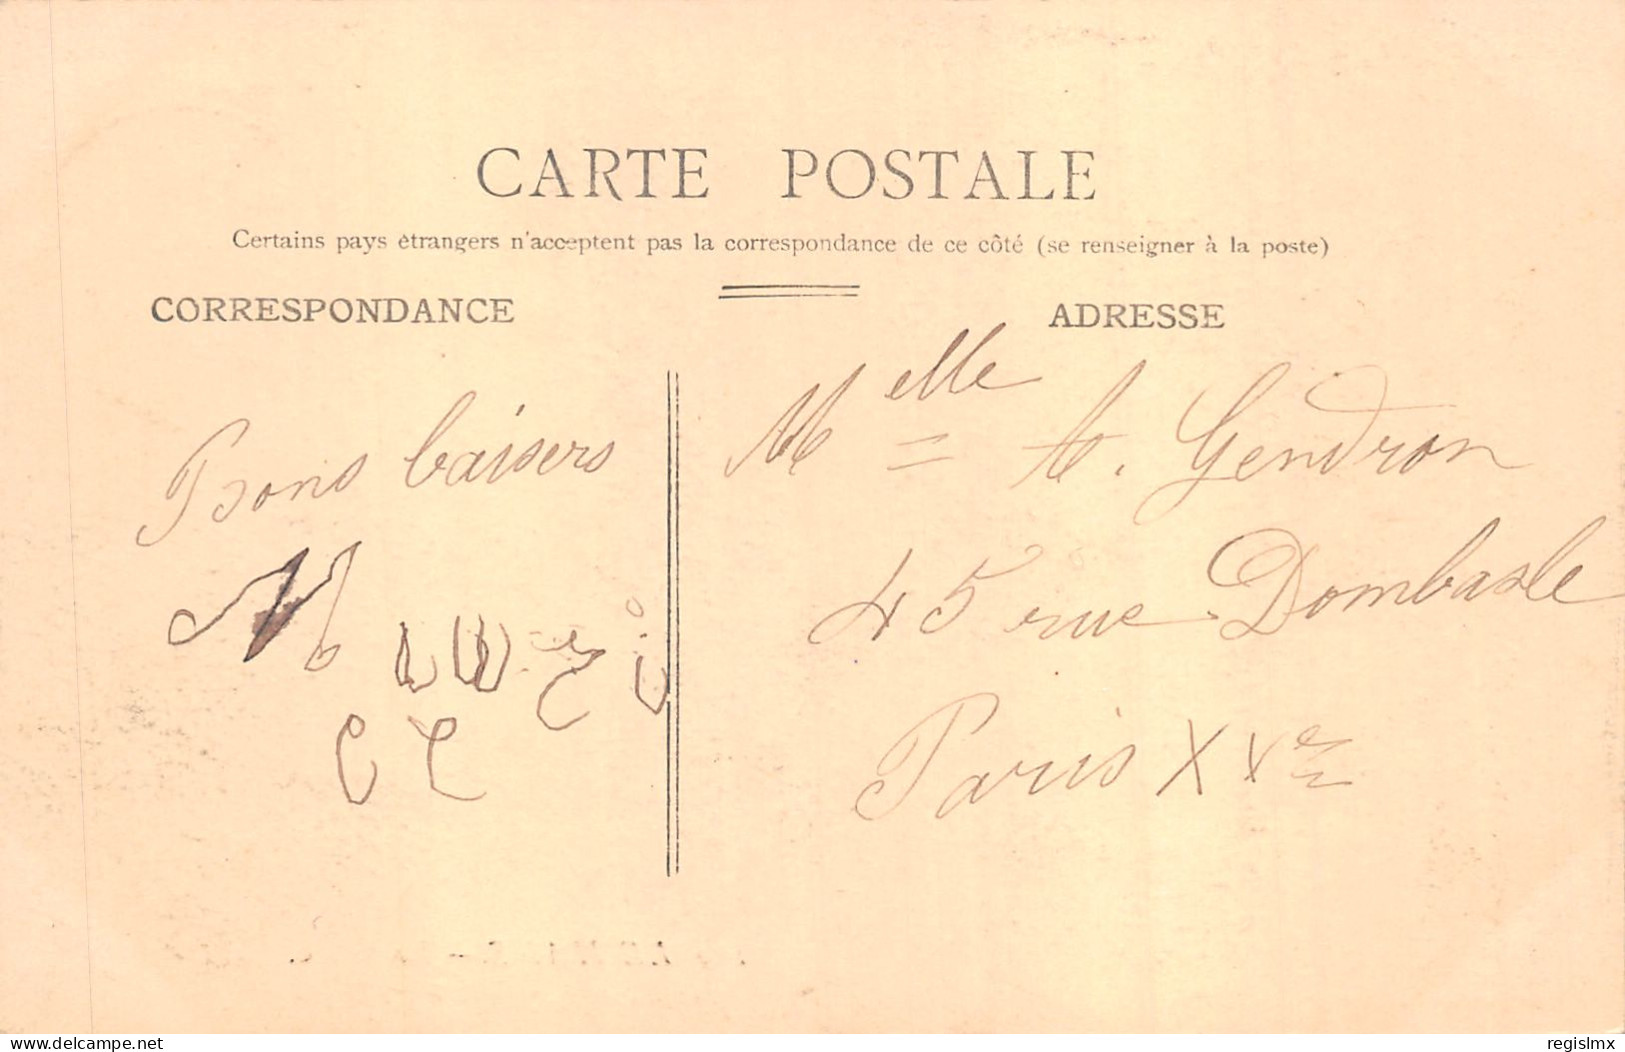 CARTE POSTALE
Certains pays étrangers n'acceptent pas la correspondance de ce côté (se renseigner à la poste)
CORRESPONDANCE
Bons baisers
ADRESSE
Melle A. Gendron
45 rue Dombasle
Paris XVe
www.delcampe.net
regislmx